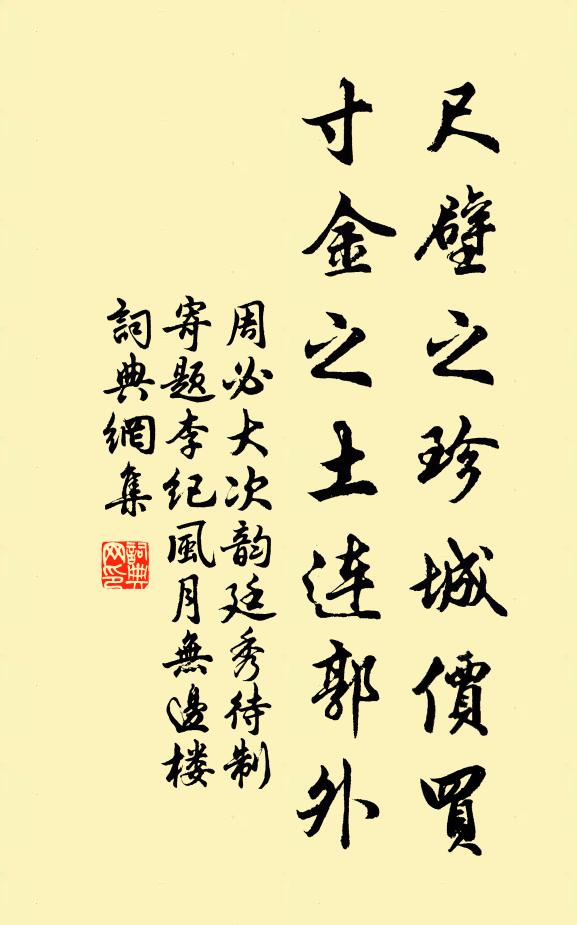 尺璧之珍城價買
寸金之土连郭外
周必大次韵廷秀待制
寄题李纪風月無邊楼
詞典網集
詞典网印